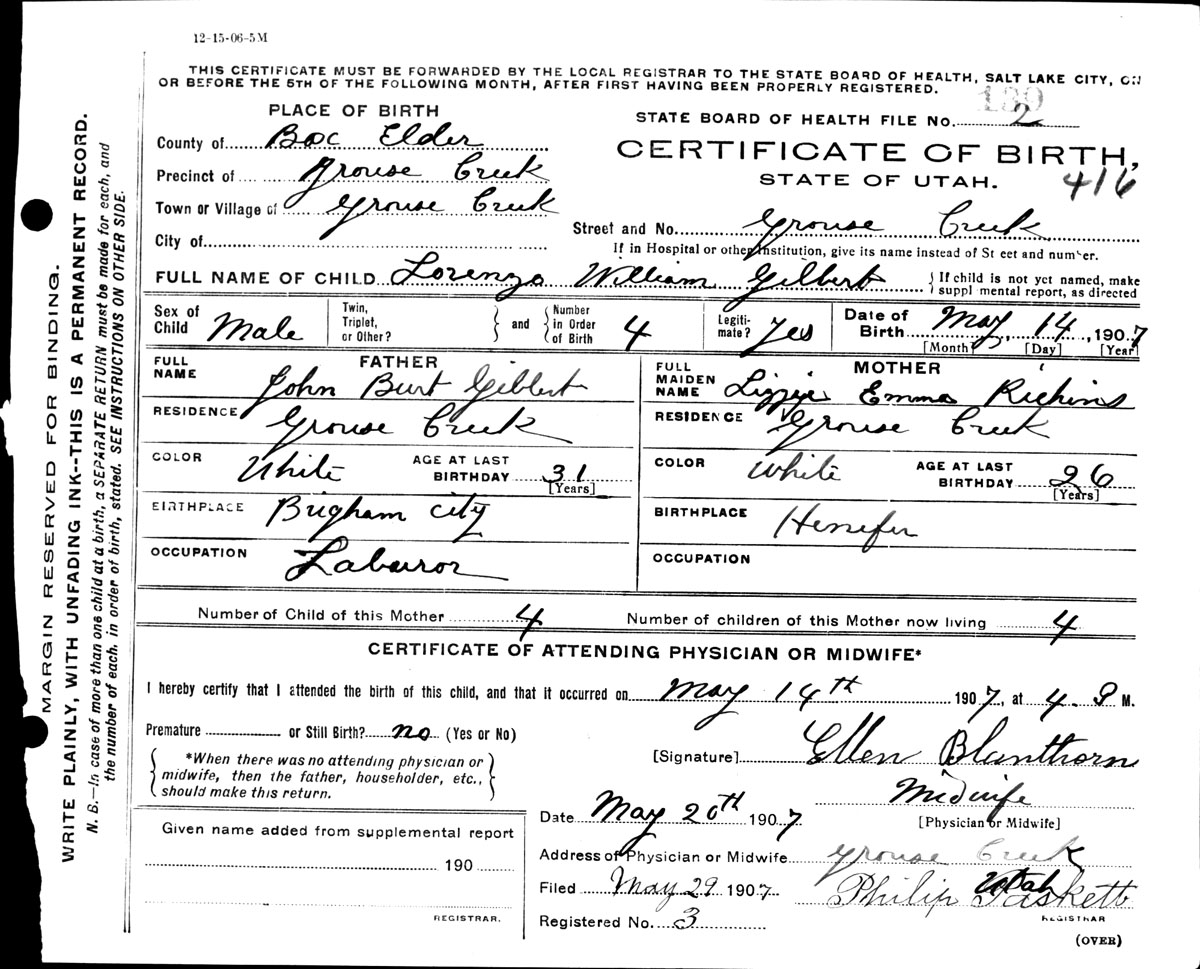 12-15-06-5M
THIS CERTIFICATE MUST BE FORWARDED BY THE LOCAL REGISTRAR TO THE STATE BOARD OF HEALTH, SALT LAKE CITY, ON
OR BEFORE THE 5TH OF THE FOLLOWING MONTH, AFTER FIRST HAVING BEEN PROPERLY REGISTERED.
PLACE OF BIRTH
STATE BOARD OF HEALTH FILE No. 2
CERTIFICATE OF BIRTH,
STATE OF UTAH.
416
County of Box Elder
Precinct of Grouse Creek
Town or Village of Grouse Creek
City of
Street and No. Grouse Creek
If in Hospital or other Institution, give its name instead of St eet and number.
FULL NAME OF CHILD Lorenzo William Gilbert
{ If child is not yet named, make
suppl mental report, as directed
Sex of Child Male
Twin, Triplet, or Other? } and { Number in Order of Birth 4
Legiti-mate? Yes
Date of Birth May, 14, 1907
[Month] [Day] [Year]
FATHER
FULL NAME John Burt Gilbert
RESIDENCE Grouse Creek
COLOR White AGE AT LAST BIRTHDAY 31
[Years]
BIRTHPLACE Brigham City
OCCUPATION Laburor
MOTHER
FULL MAIDEN NAME Lizzie Emma Richins
RESIDENCE Grouse Creek
COLOR White AGE AT LAST BIRTHDAY 26
[Years]
BIRTHPLACE Henefer
OCCUPATION
Number of Child of this Mother 4 Number of children of this Mother now living 4
CERTIFICATE OF ATTENDING PHYSICIAN OR MIDWIFE*
I hereby certify that I attended the birth of this child, and that it occurred on May 14th 1907, at 4. P M.
Premature or Still Birth? no (Yes or No)
*When there was no attending physician or
midwife, then the father, householder, etc.,
should make this return.
[Signature] Ellen Blanthorn
Midwife
[Physician or Midwife]
Date May 20th 1907
Given name added from supplemental report
190
REGISTRAR.
Address of Physician or Midwife Grouse Creek
Utah
Filed May 29 1907 Philip Paskett
REGISTRAR
Registered No. 3
(OVER)
MARGIN RESERVED FOR BINDING.
WRITE PLAINLY, WITH UNFADING INK--THIS IS A PERMANENT RECORD.
N. B.—In case of more than one child at a birth, a SEPARATE RETURN must be made for each, and
the number of each, in order of birth, stated. SEE INSTRUCTIONS ON OTHER SIDE.